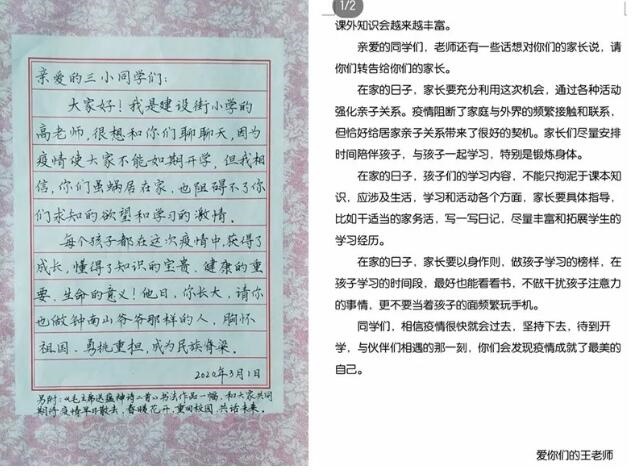 亲爱的三小同学们：
大家好！我是建设街小学的
高老师，很想和你们聊聊天，因为
疫情使大家不能如期开学，但我相
信，你们虽蜗居在家，也阻碍不了你
们求知的欲望和学习的激情。
每个孩子都在这次疫情中获得了
成长，懂得了知识的宝贵、健康的重
要、生命的意义！他日，你长大，请你
也做钟南山爷爷那样的人，胸怀
祖国、勇挑重担，成为民族脊梁。
2020年3月1日
另附：《毛主席送瘟神诗二首》书法作品一幅，和大家共同
期待疫情早日散去，春暖花开，重回校园，共话未来。
1/2
课外知识会越来越丰富。
亲爱的同学们，老师还有一些话想对你们的家长说，请
你们转告给你们的家长。
在家的日子，家长要充分利用这次机会，通过各种活动
强化亲子关系。疫情阻断了家庭与外界的频繁接触和联系，
但恰好给居家亲子关系带来了很好的契机。家长们尽量安排
时间陪伴孩子，与孩子一起学习，特别是锻炼身体。
在家的日子，孩子们的学习内容，不能只拘泥于课本知
识，应涉及生活，学习和活动各个方面，家长要具体指导，
比如干适当的家务活，写一写日记，尽量丰富和拓展学生的
学习经历。
在家的日子，家长要以身作则，做孩子学习的榜样，在
孩子学习的时间段，最好也能看看书，不做干扰孩子注意力
的事情，更不要当着孩子的面频繁玩手机。
同学们，相信疫情很快就会过去，坚持下去，待到开
学，与伙伴们相遇的那一刻，你们会发现疫情成就了最美的
自己。
爱你们的王老师